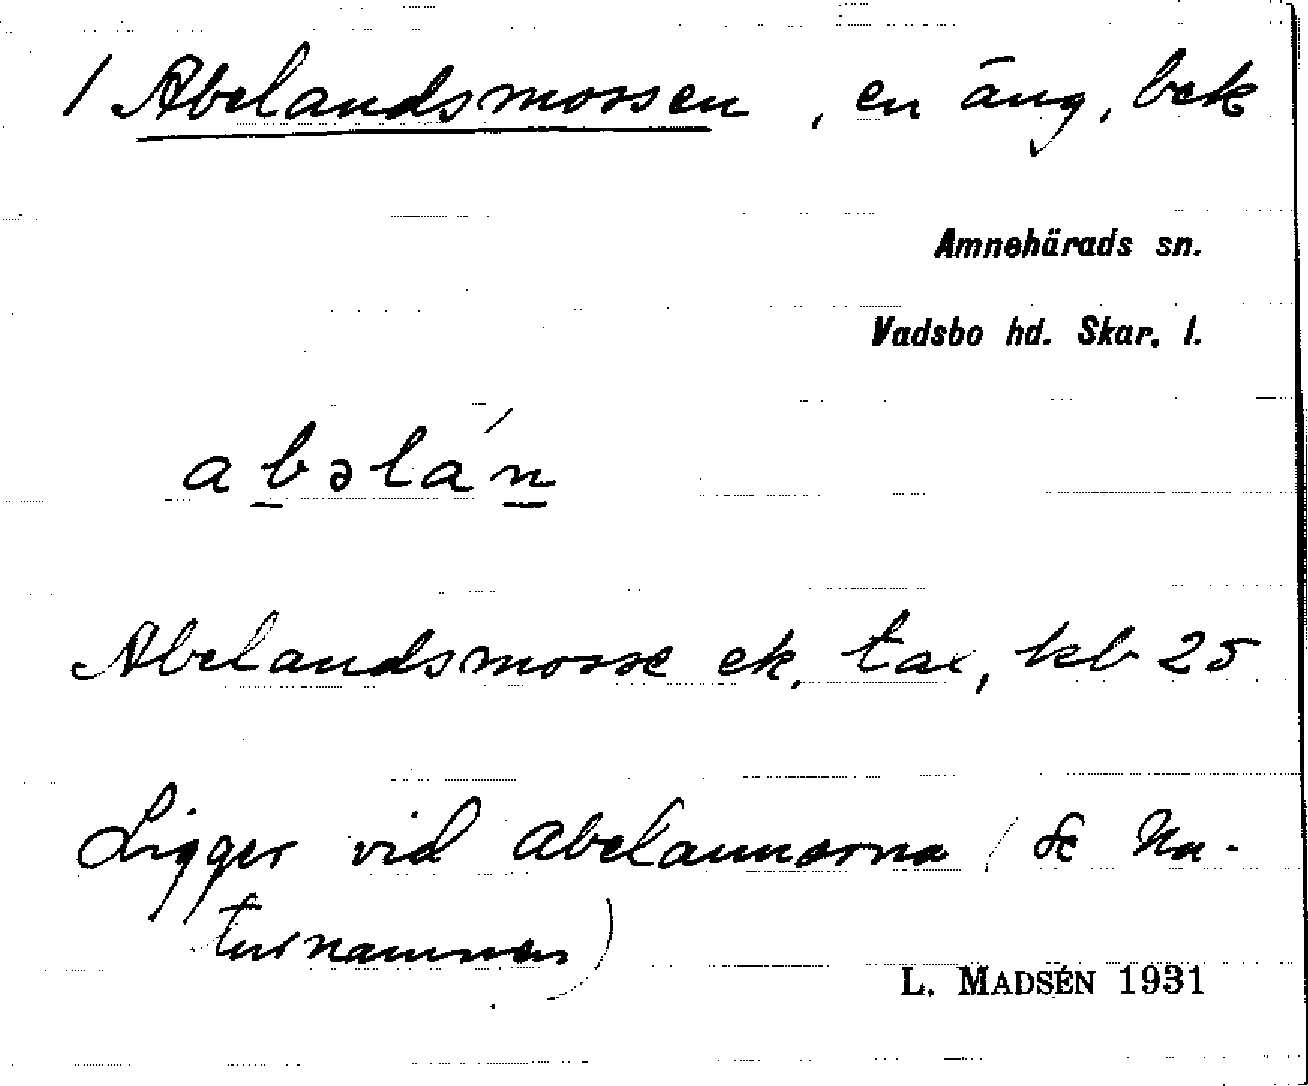 / Abelandsmossen, en äng, bek
Amnehärads sn.
Vadsbo hd. Skar. l.
abəlán
Abelandsmosse ek. tax, kb 25
Ligger vid abelannarna (Se Na-
turnamnen)
L. MADSÉN 1931